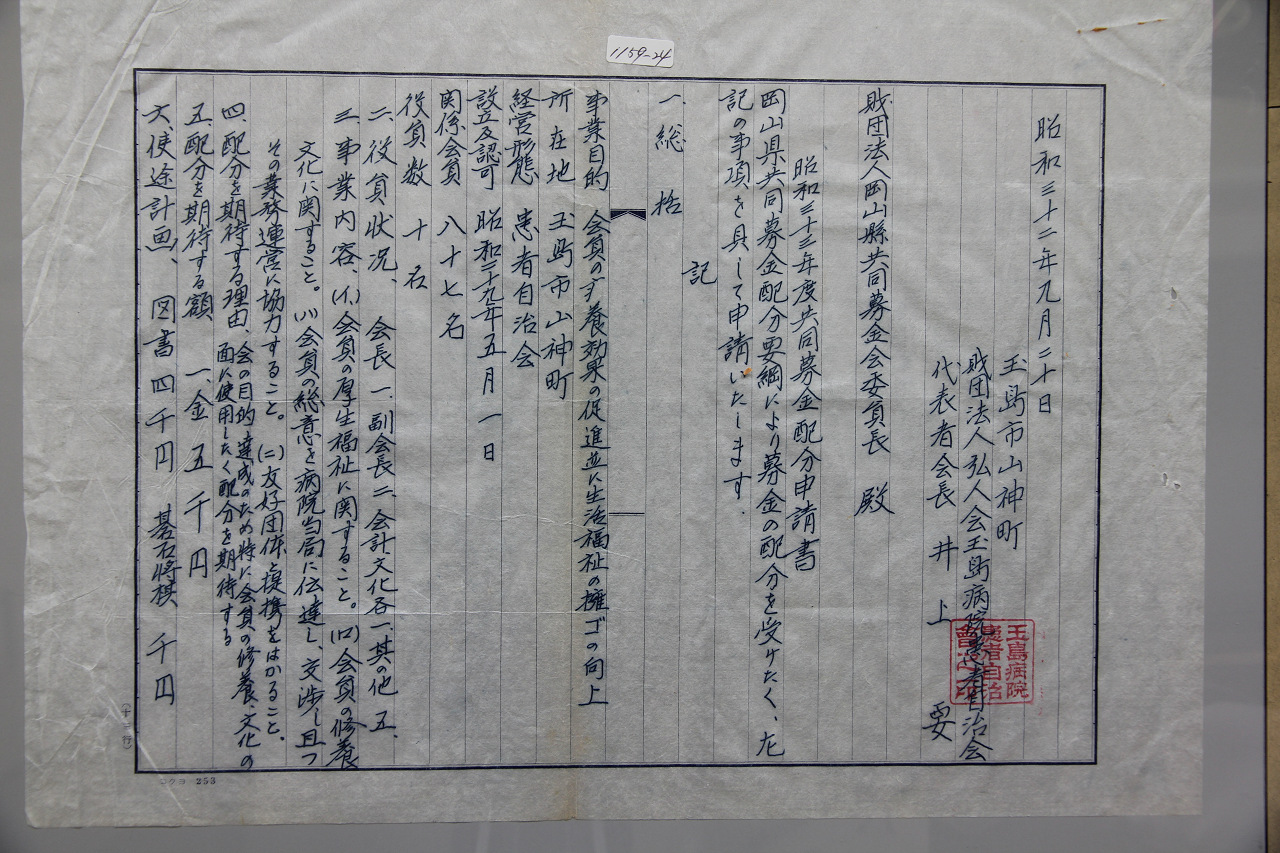 1159-24
昭和三十二年九月二十日
玉島市山神町
財団法人弘人会玉島病院患者自治会
代表者会長 井上 要
玉島病院
患者自治
財団法人岡山縣共同募金会委員長 殿
昭和三十三年度共同募金配分申請書
岡山県共同募金配分要綱により募金の配分を受けたく、左
記の事項を具して申請いたします.
記
一、総 括
事業目的 会員の療養効果の促進並に生活福祉の擁ゴの向上
所在地 玉島市山神町
経営形態 患者自治会
設立及認可 昭和二十九年五月一日
関係会員 八十七名
役員数 十名
二、役員状況、 会長一、副会長二、会計文化各一、其の他五、
三、事業内容、(イ)会員の厚生福祉に関すること。(ロ)会員の修養
文化に関すること。(ハ)会員の総意を病院当局に伝達し、交渉し且つ
その業務運営に協力すること。(ニ)友好団体と提携をはかること。
四、配分を期待する理由、会の目的達成のため特に会員の修養、文化の
面に使用したく配分を期待する
五、配分を期待する額 一、金五千円
六、使途計画、 図書四千円 碁石将棋 千円
(十二行)
コクヨ 253